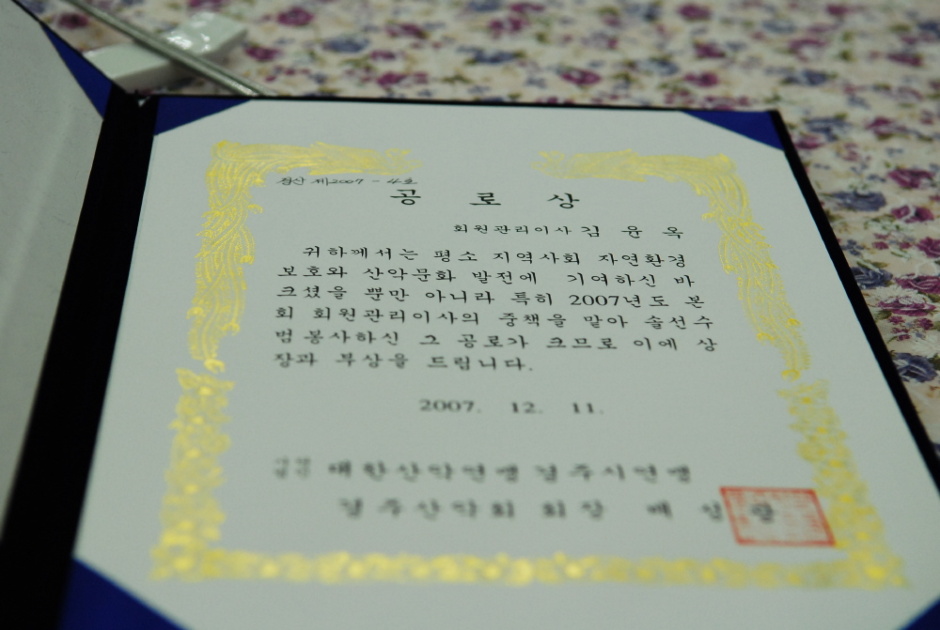 경산 제2007 - 4호
공 로 상
회원관리이사 김 윤 옥
귀하께서는 평소 지역사회 자연환경
보호와 산악문화 발전에 기여하신 바
크셨을 뿐만 아니라 특히 2007년도 본
회 회원관리이사의 중책을 맡아 솔선수
범 봉사하신 그 공로가 크므로 이에 상
장과 부상을 드립니다.
2007. 12. 11.
사단법인 대한산악연맹 경주시연맹
경주산악회 회장 배